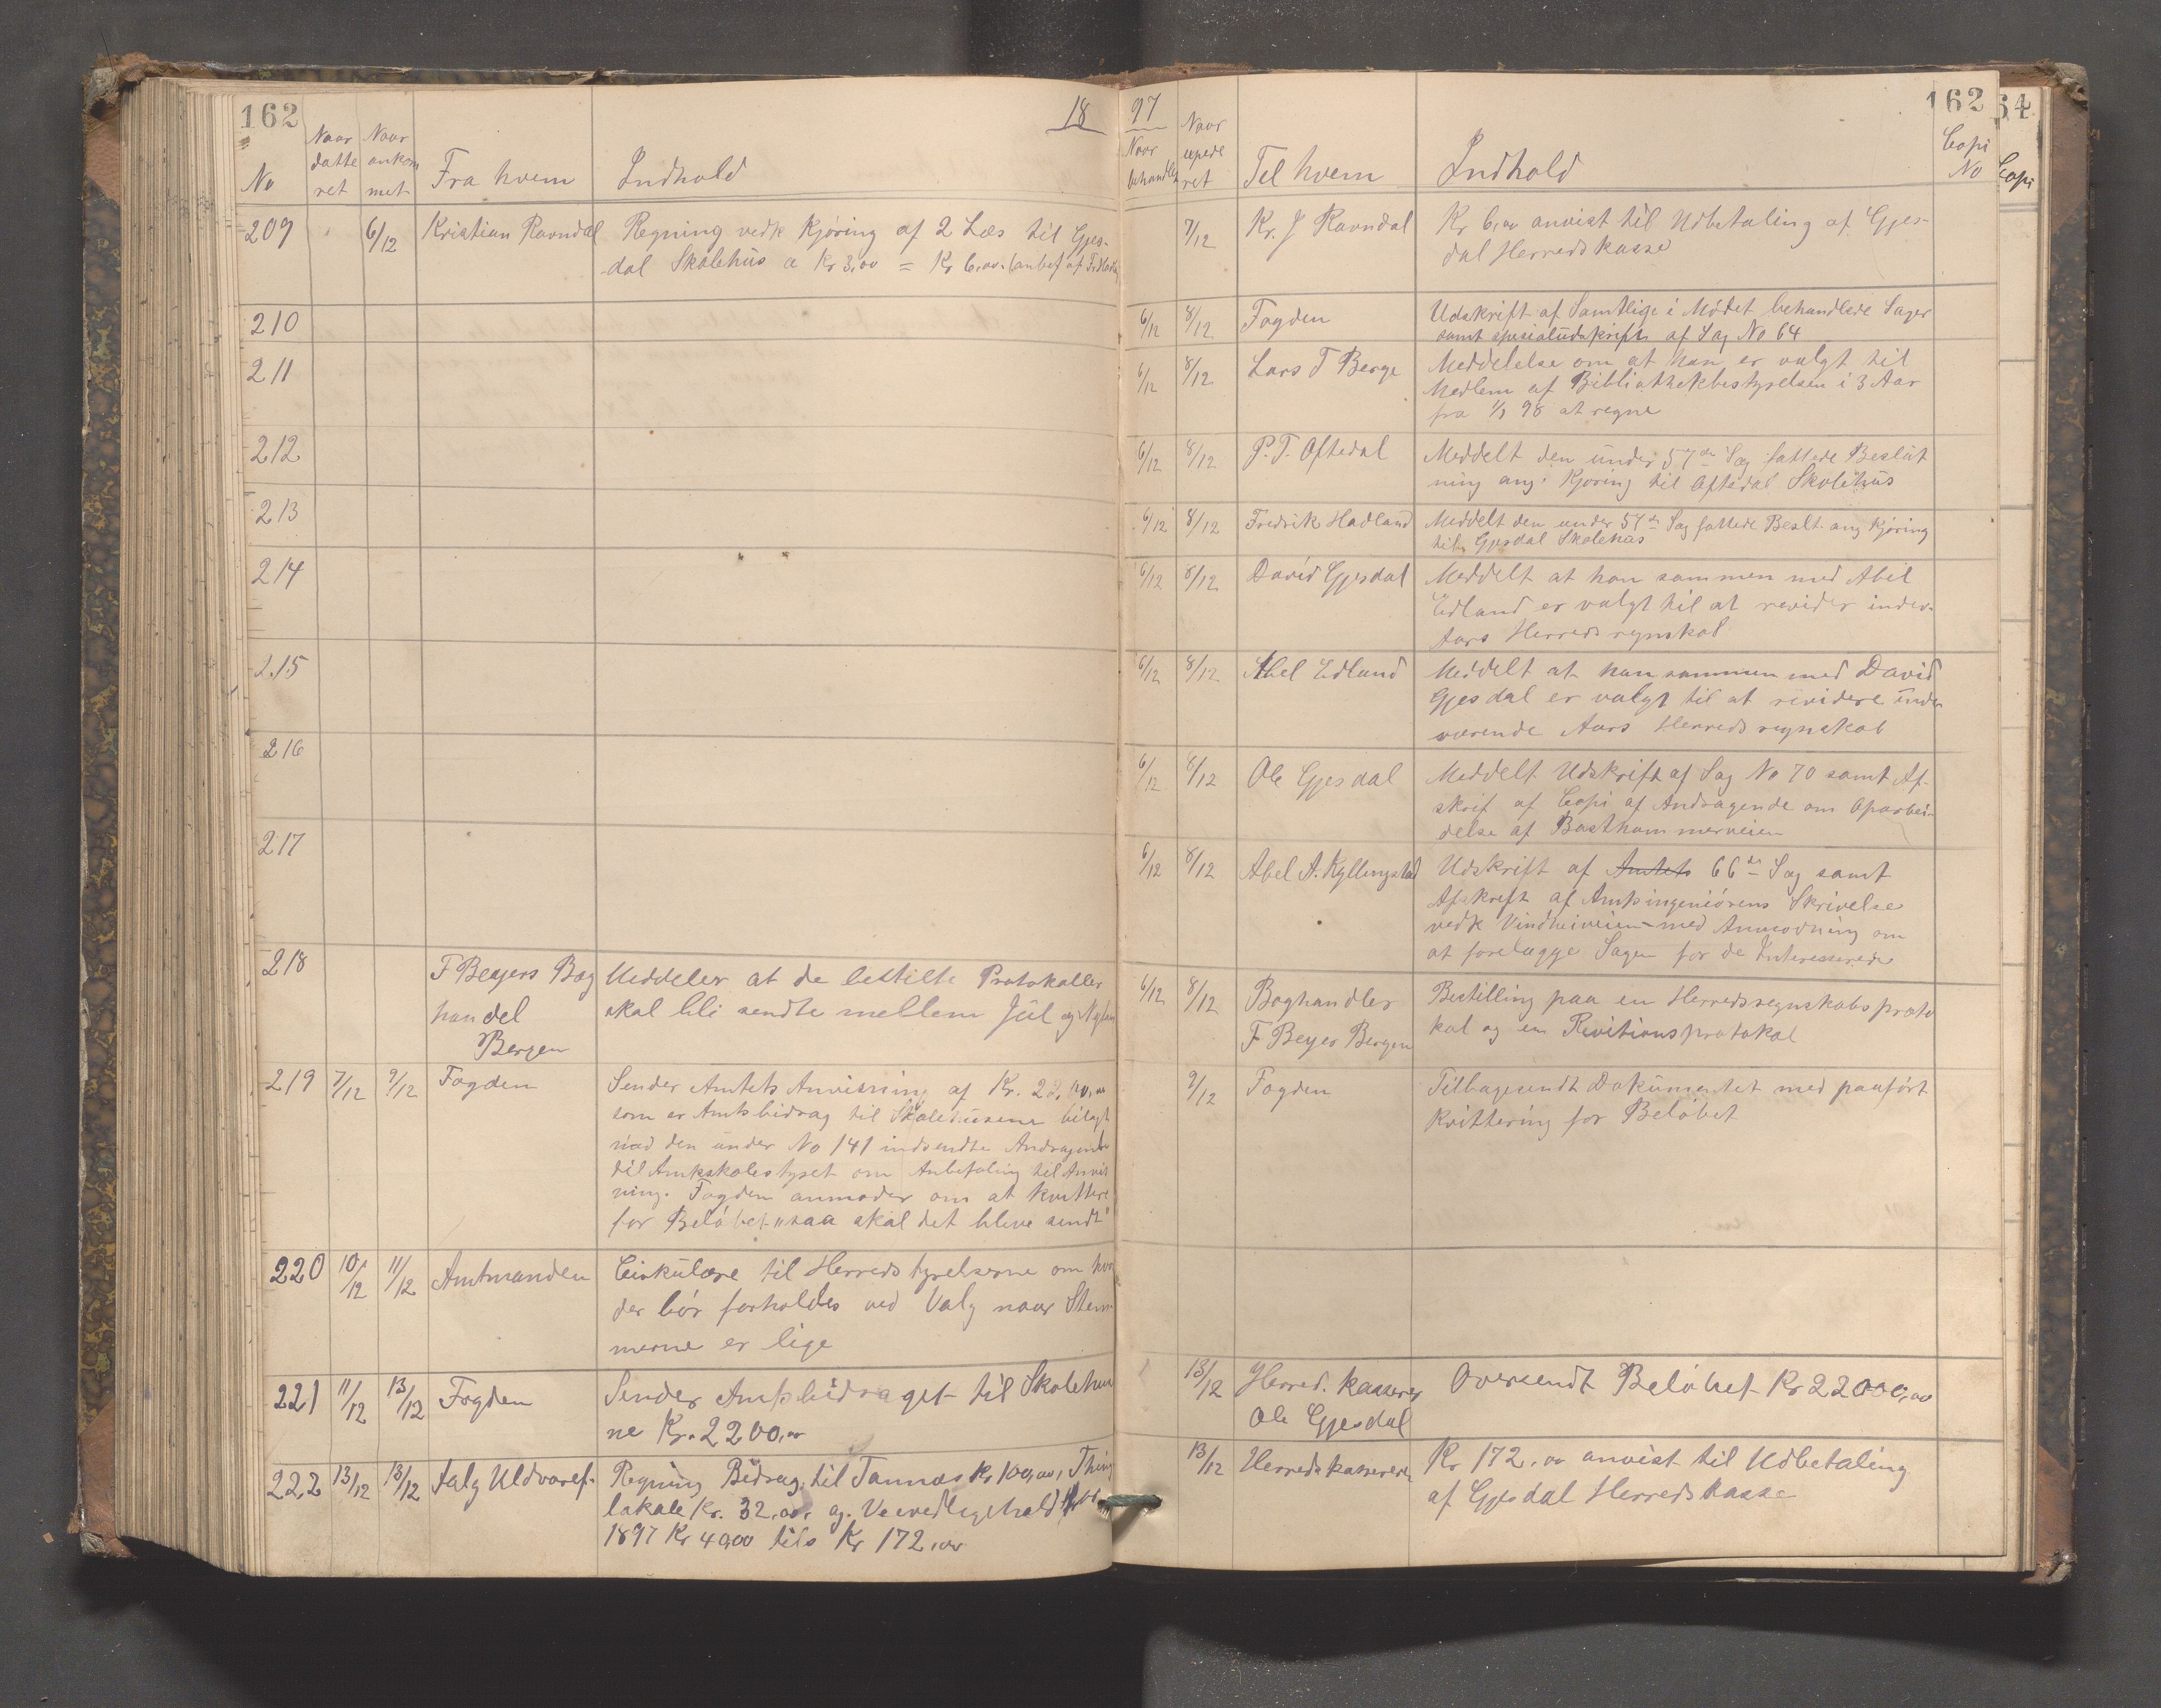 162
18
No
Naar datte ret
Naar ankom met
Fra hvem
Indhold
209 6/12 Kristian Ravndal Regning vedk Kjøring af 2 Læs til Gjes-
dal Skolehus a Kr 3,00 = Kr 6,00 (anbef af
210
211
212
213
214
215
216
217
218 F Beyers Bog Meddeler at de bestilte Protokoller
handel skal bli sendte mellem Jul og
Bergen
219 7/12 9/12 Fogden Sender Amtets Anvisning af Kr.
som er Amtsbidrag til Skolehusene bilagt
med den under No 141 indsendte Andragende
til Amtskolestyret om Anbefaling til Anvis
ning. Fogden anmoder om at kvittere
for Beløbet "saa skal det blive sendt"
220 10/12 11/12 Amtmanden Cirkulære til Herredstyrelserne om
der bør forholdes ved Valg naar Stem-
merne er lige
221 11/12 13/12 Fogden Sender Amtsbidraget til Skolehuse
ne Kr. 2200,00
222 13/12 13/12 Regning Bidrag til Kr 100,00, Thing
lokale Kr. 32,00, og Veivedligehold
1897 Kr 40,00 tils Kr 172,00
97
162
64
Naar behandlet
Naar expede ret
Til hvem
Indhold
Copi No
Copi
7/12 Kr. J Ravndal Kr 6,00 anvist til Udbetaling af Gjes-
dal Herredskasse
6/12 8/12 Fogden Udskrift af Samtlige i Mødet behandlede Sager
samt spesialudskrift af Sag No 64
6/12 8/12 Lars T Berge Meddelelse om at han er valgt til
Medlem af Bibliothekbestyrelsen i 3 Aar
fra 1/1 98 at regne
6/12 8/12 P. T. Oftedal Meddelt den under 57de Sag fattede Beslut
ning ang: Kjøring til Oftedal Skolehus
6/12 8/12 Fredrik Hadland Meddelt den under 57de Sag fattede Beslt. ang Kjøring
til Gjesdal Skolehus
6/12 8/12 David Gjesdal Meddelt at han sammen med Abel
Edland er valgt til at revider indev.
Aars Herredsregnskab
6/12 8/12 Abel Edland Meddelt at han sammen med David
Gjesdal er valgt til at revidere inde
værende Aars Herredsregnskab
6/12 8/12 Ole Gjesdal Meddelt Udskrift af Sag No 70 samt Af-
skrif af Copi af Andragende om Oparbei-
delse af
6/12 8/12 Abel A. Kyllingstad Udskrift af Amtets 66de Sag samt
Afskrift af Amtsingeniørens Skrivelse
vedk Vindheiveien med Anmodning om
at forelægge Sagen for de Interesserede
6/12 8/12 Boghandler Bestilling paa en Herredsregnskabsproto
F Beyer Bergen kol og en Revitionsprotokol
9/12 Fogden Tilbagesendt Dokumentet med paaført
Kvittering for Beløbet
13/12 Herred. kasserer Oversendt Beløbet Kr 22000,00
Ole Gjesdal
13/12 Herredskassereren Kr 172,00 anvist til Udbetaling
af Gjesdal Herredskasse